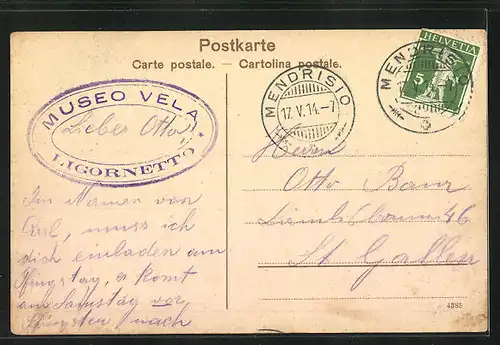 Postkarte
Carte postale. — Cartolina postale.
MUSEO VELA
LIGORNETTO
MENDRISIO
17. V. 14. - 7
MENDRISIO
HELVETIA
5
Lieber Otto!
Im Namen von
muss ich
dich einladen am
Pfingstag, er komt
am Samstag vor
Pfingsten nach
Herrn
Otto Banz
46
St Gallen
4383